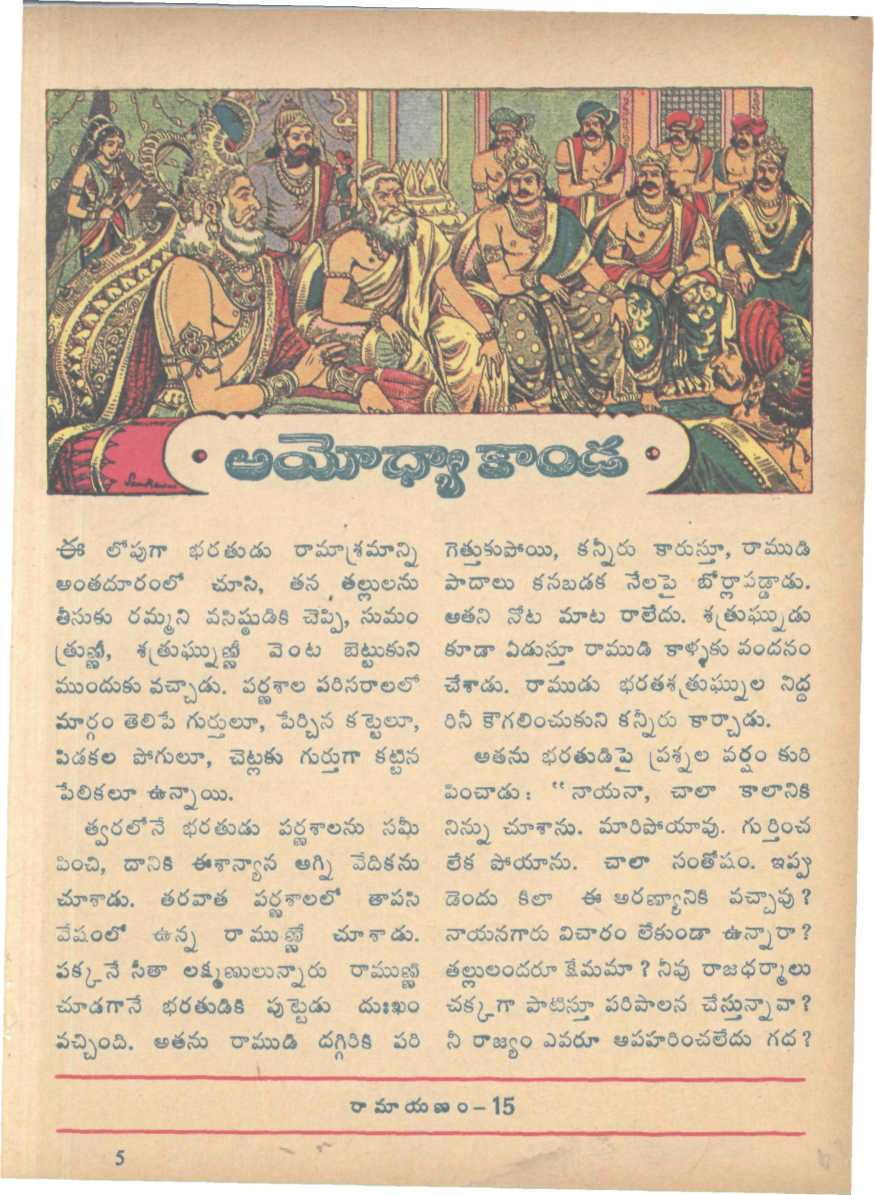 అయోధ్యాకాండ
ఈ లోపుగా భరతుడు రామాశ్రమాన్ని
అంతదూరంలో చూసి, తన తల్లులను
తీసుకు రమ్మని వసిష్ఠుడికి చెప్పి, సుమం
త్రుణ్ణీ, శత్రుఘ్నుణ్ణీ వెంట బెట్టుకుని
ముందుకు వచ్చాడు. పర్ణశాల పరిసరాలలో
మార్గం తెలిపే గుర్తులూ, పేర్చిన కట్టెలూ,
పిడకల పోగులూ, చెట్లకు గుర్తుగా కట్టిన
పేలికలూ ఉన్నాయి.
త్వరలోనే భరతుడు పర్ణశాలను సమీ
పించి, దానికి ఈశాన్యాన అగ్ని వేదికను
చూశాడు. తరవాత పర్ణశాలలో తాపసి
వేషంలో ఉన్న రాముణ్ణే చూశాడు.
పక్కనే సీతా లక్ష్మణులున్నారు రాముణ్ణి
చూడగానే భరతుడికి పుట్టెడు దుఃఖం
వచ్చింది. అతను రాముడి దగ్గిరికి పరి
గెత్తుకుపోయి, కన్నీరు కారుస్తూ, రాముడి
పాదాలు కనబడక నేలపై బోర్లాపడ్డాడు.
అతని నోట మాట రాలేదు. శత్రుఘ్నుడు
కూడా ఏడుస్తూ రాముడి కాళ్ళకు వందనం
చేశాడు. రాముడు భరతశత్రుఘ్నుల నిద్ద
రినీ కౌగలించుకుని కన్నీరు కార్చాడు.
అతను భరతుడిపై ప్రశ్నల వర్షం కురి
పించాడు: "నాయనా, చాలా కాలానికి
నిన్ను చూశాను. మారిపోయావు. గుర్తించ
లేక పోయాను. చాలా సంతోషం. ఇప్పు
డెందు కిలా ఈ అరణ్యానికి వచ్చావు?
నాయనగారు విచారం లేకుండా ఉన్నారా?
తల్లులందరూ క్షేమమా? నీవు రాజధర్మాలు
చక్కగా పాటిస్తూ పరిపాలన చేస్తున్నావా?
నీ రాజ్యం ఎవరూ అపహరించలేదు గద?
రామాయణం-15
5